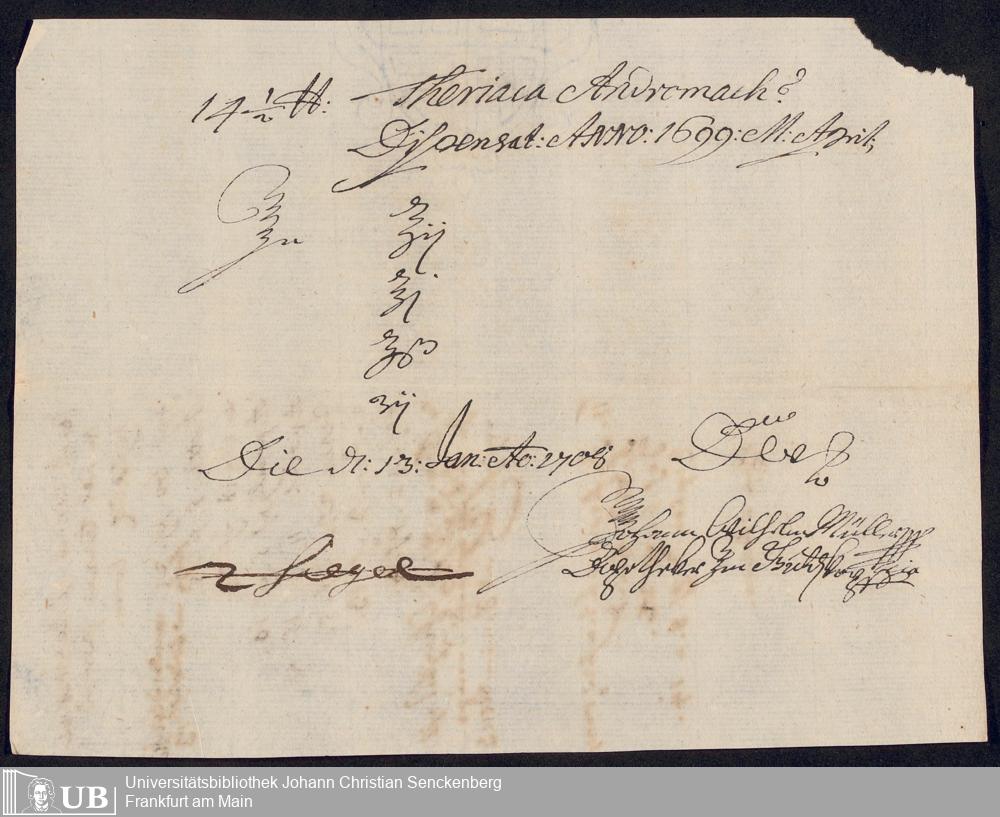 14 ½ ℔: Theriaca Andromach:
Dispensat: ANNO: 1699: M: April:
Zu ℥ij
℥j
℥ß
ʒij
Die d: 13: Jan: Ao: 1708
Johann Wilhelm Müller
Apotheker Zu
2 Siegel
Universitätsbibliothek Johann Christian Senckenberg
Frankfurt am Main
UB